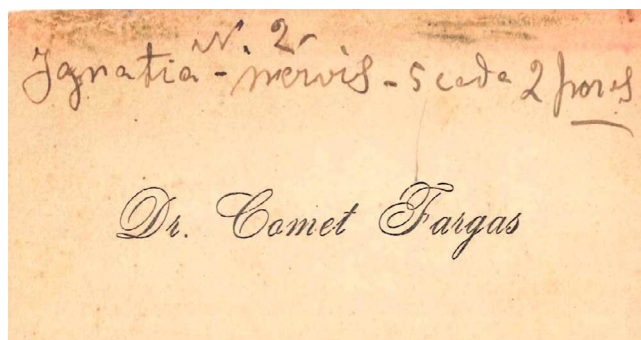 N. 2
Ignatia - nervis - 5 cada 2 hores
Dr. Comet Fargas